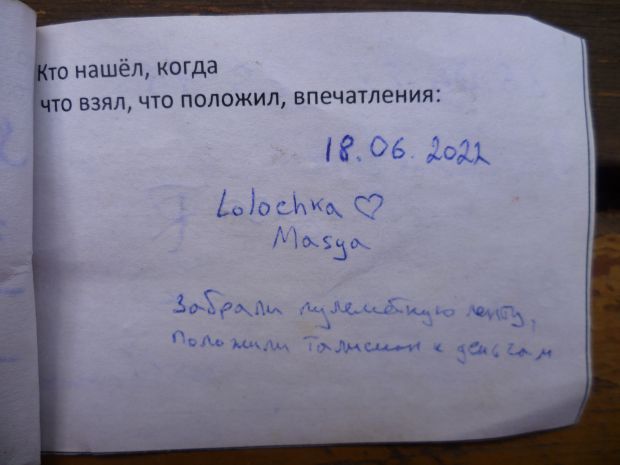 Кто нашёл, когда
что взял, что положил, впечатления:
18.06.2022
Lolochka ♡
Masya
Забрали пулемётную ленту,
Положили талисман к деньгам